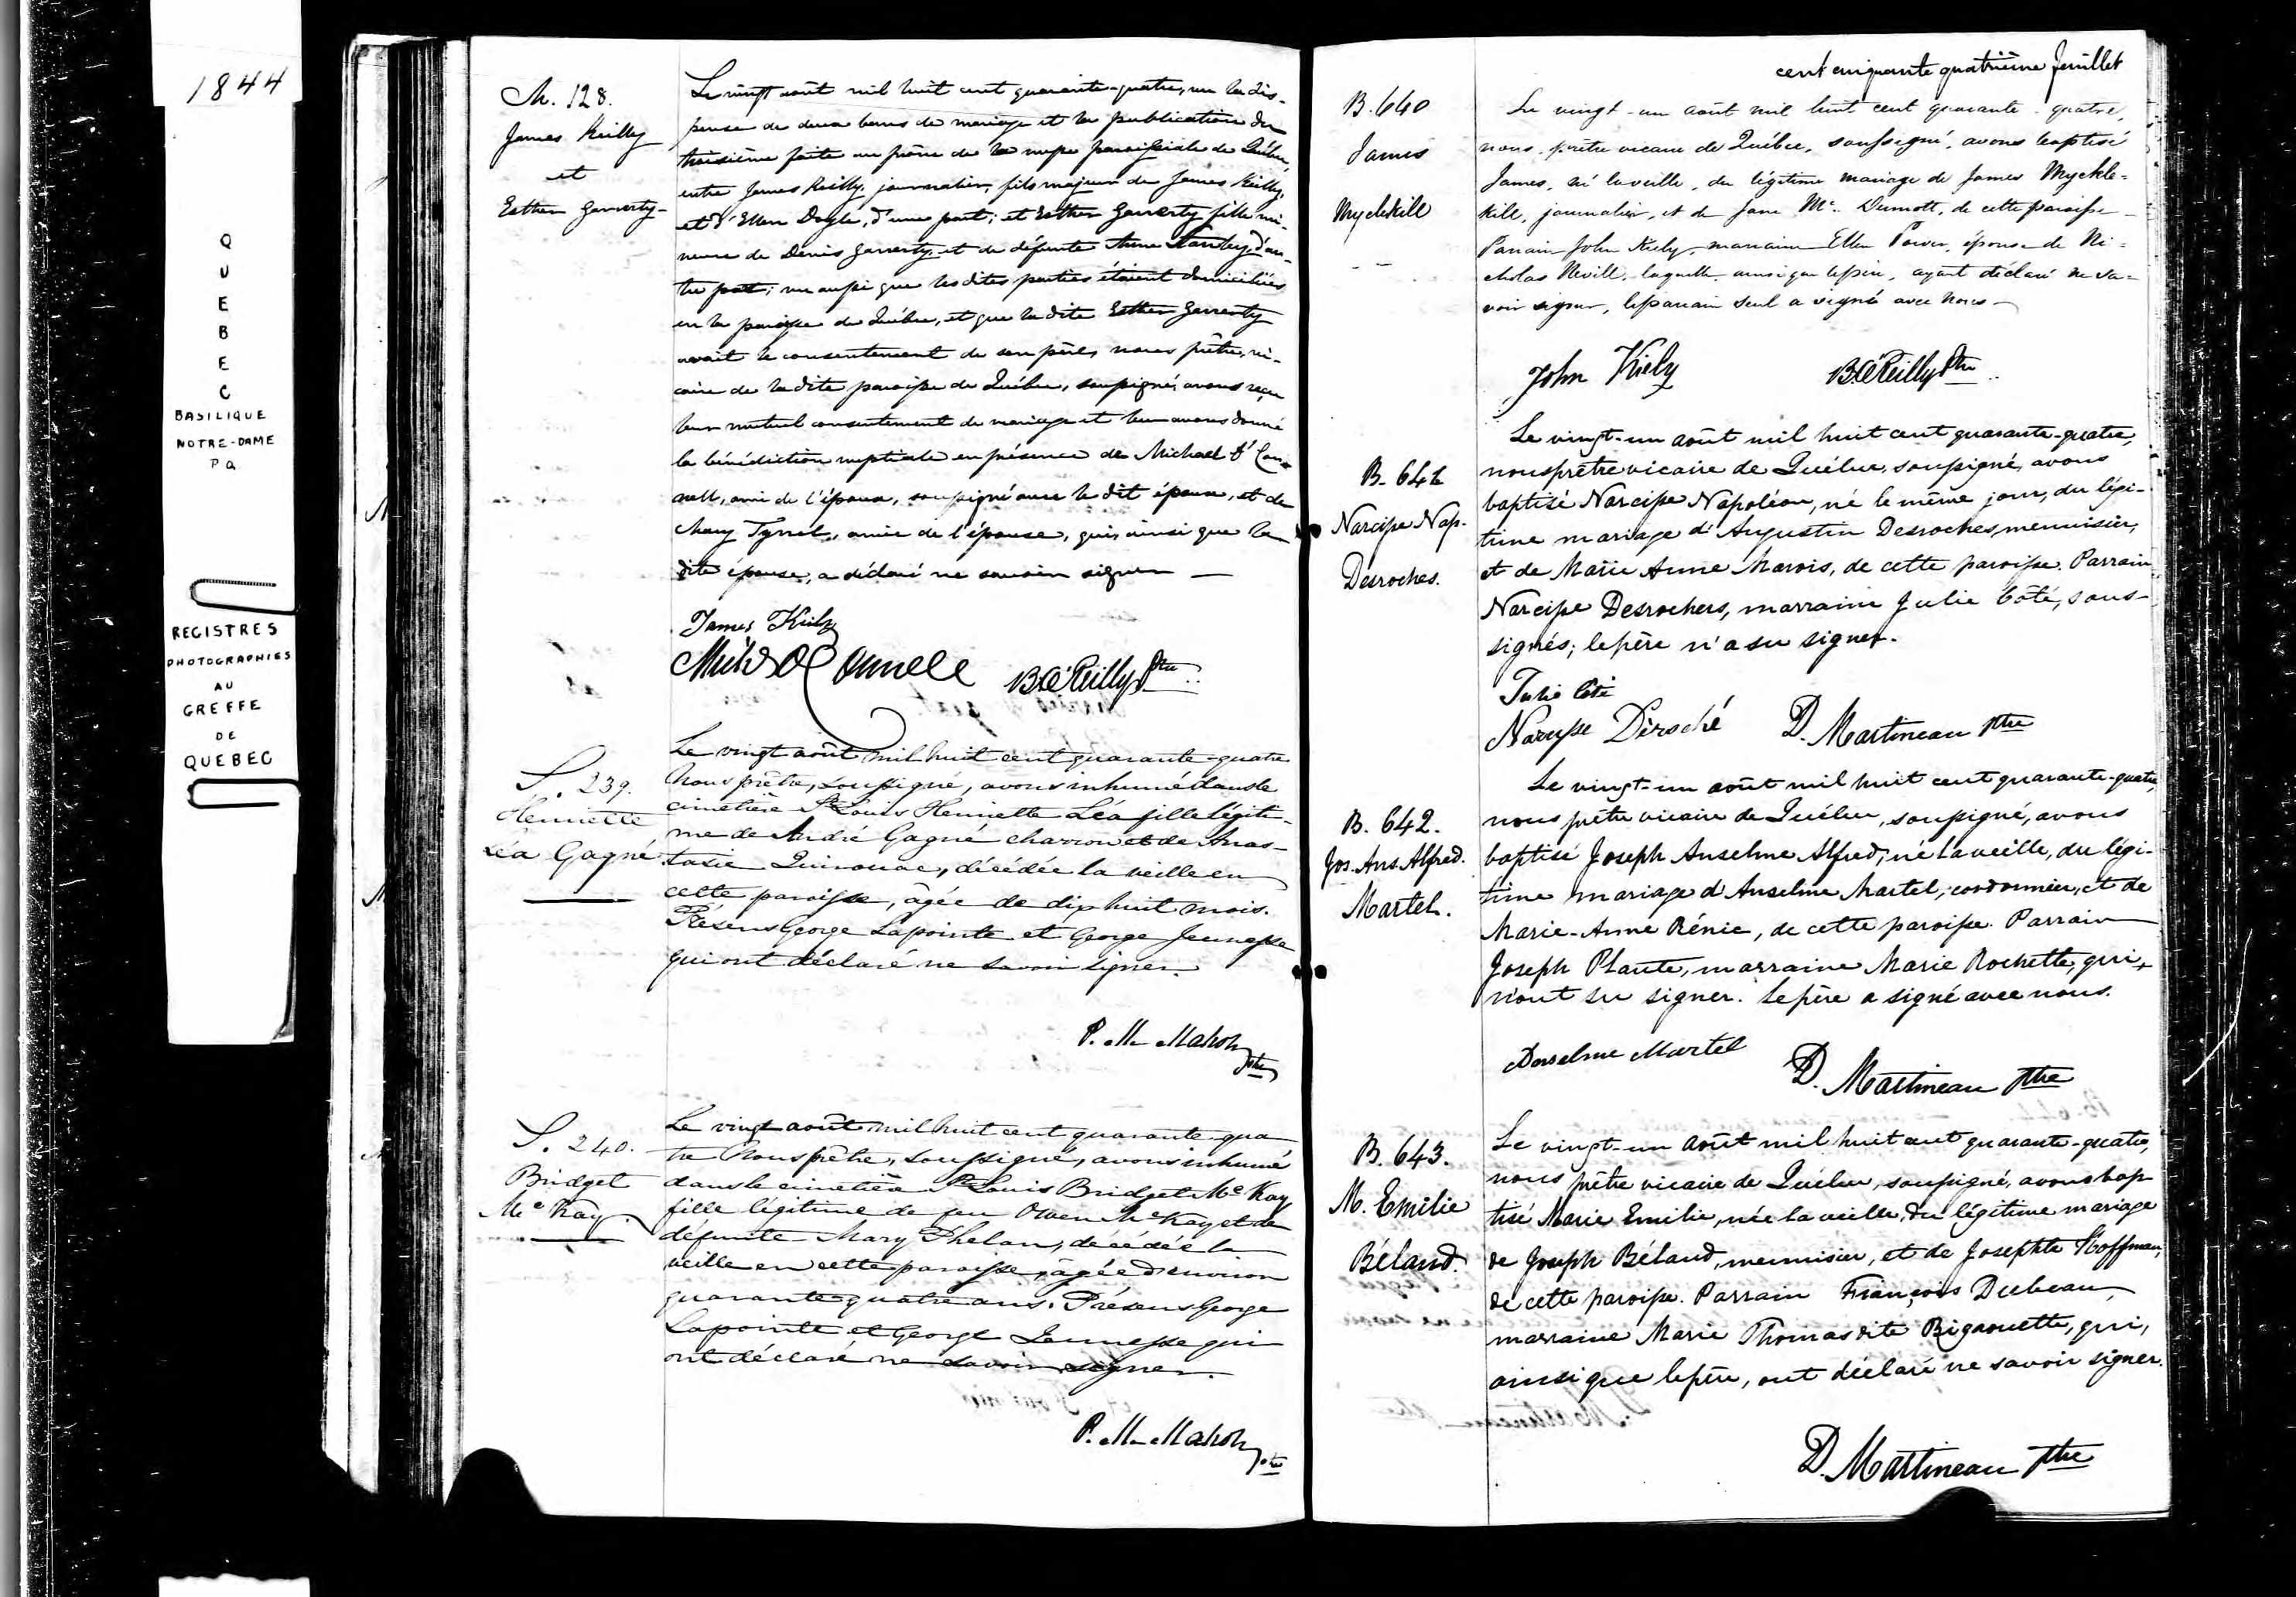 1844
Q
U
E
B
E
C
BASILIQUE
NOTRE-DAME
P Q
REGISTRES
PHOTOGRAPHIES
AU
GREFFE
DE
QUEBEC
M. 128.
James Reilly
et
Esther Garverty
Le vingt août mil huit cent quarante-quatre, vu la dis-
pense de deux bans de mariage et la publication du
troisième faite au prône de la messe paroissiale de Québec,
entre James Reilly, journalier, fils majeur de James Reilly,
et d'Ellen Doyle, d'une part; et Esther Garverty fille mi-
neure de Denis Garverty et de défunte Anne d'au-
tre part; vu aussi que les dites parties étaient domiciliées
en la paroisse de Québec, et que la dite Esther Garverty
avait le consentement de son père, nous prêtre, vi-
caire de la dite paroisse de Québec, soussigné, avons reçu
leur mutuel consentement de mariage et leur avons donné
la bénédiction nuptiale en présence de Michael O'Con-
nell, ami de l'époux, soussigné avec le dit époux, et de
Mary Tyrrel, amie de l'épouse, qui, ainsi que la
dite épouse, a déclaré ne savoir signer —
James
Mich O Connell B. O'Reilly Ptre
S. 239.
Henriette
Léa Gagné
Le vingt août mil huit cent quarante-quatre
Nous prêtre, soussigné, avons inhumé dans le
cimetière St Louis Henriette Léa fille légiti-
me de André Gagné charron et de Anas-
tasie Quirouac, décédée la veille en
cette paroisse, âgée de dix huit mois.
Présens George Lapointe et George Jeunesse
qui ont déclaré ne savoir signer.
P. McMahon ptre
S. 240.
Bridget
Mc Kay.
Le vingt août mil huit cent quarante-qua
tre Nous prêtre, soussigné, avons inhumé
dans le cimetière St Louis Bridget Mc Kay
fille légitime de feu Owen Mc Kay et de
défunte Mary Phelan, décédée la
veille en cette paroisse, âgée d'environ
quarante-quatre ans. Présens George
Lapointe et George Jeunesse qui
ont déclaré ne savoir signer.
P. McMahon ptre
cent cinquante quatrième feuillet
B. 640
James
Mycklekill
Le vingt-un août mil huit cent quarante-quatre,
nous, prêtre vicaire de Québec, soussigné, avons baptisé
James, né la veille, du légitime mariage de James Myckle-
kill, journalier, et de Jane Mc. Dermott, de cette paroisse
Parrain John Kiely, marraine Ellen Power, épouse de Ni-
cholas Nevill, laquelle ainsi que le père, ayant déclaré ne sa-
voir signer, le parrain seul a signé avec nous —
John Kiely B. O'Reilly Ptre
B. 641
Narcisse Nap.
Desroches.
Le vingt-un août mil huit cent quarante-quatre,
nous prêtre vicaire de Québec, soussigné, avons
baptisé Narcisse Napoléon, né le même jour, du légi-
time mariage d'Augustin Desroches, menuisier,
et de Marie Anne Marois, de cette paroisse. Parrain
Narcisse Desrochers, marraine Julie Côté, sous-
signés; le père n'a su signer.
Julie Coté
Narcisse Déroché D. Martineau ptre
B. 642.
Jos. Ans. Alfred.
Martel.
Le vingt-un août mil huit cent quarante-quatre,
nous prêtre vicaire de Québec, soussigné, avons
baptisé Joseph Anselme Alfred, né la veille, du légi-
time mariage d'Anselme Martel, cordonnier, et de
Marie-Anne Rénie, de cette paroisse. Parrain
Joseph Plante, marraine Marie Rochette, qui
n'ont su signer. Le père a signé avec nous.
Anselme Martel
D. Martineau Ptre
B. 643.
M. Emilie
Béland.
Le vingt-un août mil huit cent quarante-quatre,
nous prêtre vicaire de Québec, soussigné, avons bap
tisé Marie Emilie, née la veille, du légitime mariage
de Joseph Béland, menuisier, et de Josephte Hoffman,
de cette paroisse. Parrain François Dubeau,
marraine Marie Thomas dite Bigaouette, qui,
ainsi que le père, ont déclaré ne savoir signer.
D. Martineau Ptre